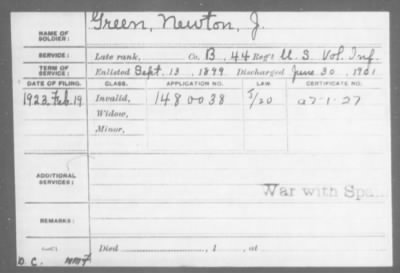 NAME OF SOLDIER: Green, Newton, J.
SERVICE: Late rank, Co. B, 44 Reg't U. S. Vol. Inf.
TERM OF SERVICE: Enlisted Sept. 13, 1899 Discharged June 30, 1901
DATE OF FILING. CLASS. APPLICATION NO. LAW. CERTIFICATE NO.
1923 Feb. 19 Invalid, 1480038 5/20 a7-1-27
Widow,
Minor,
ADDITIONAL SERVICES:
War with Spa
REMARKS:
Died , 1 , at
D. C.